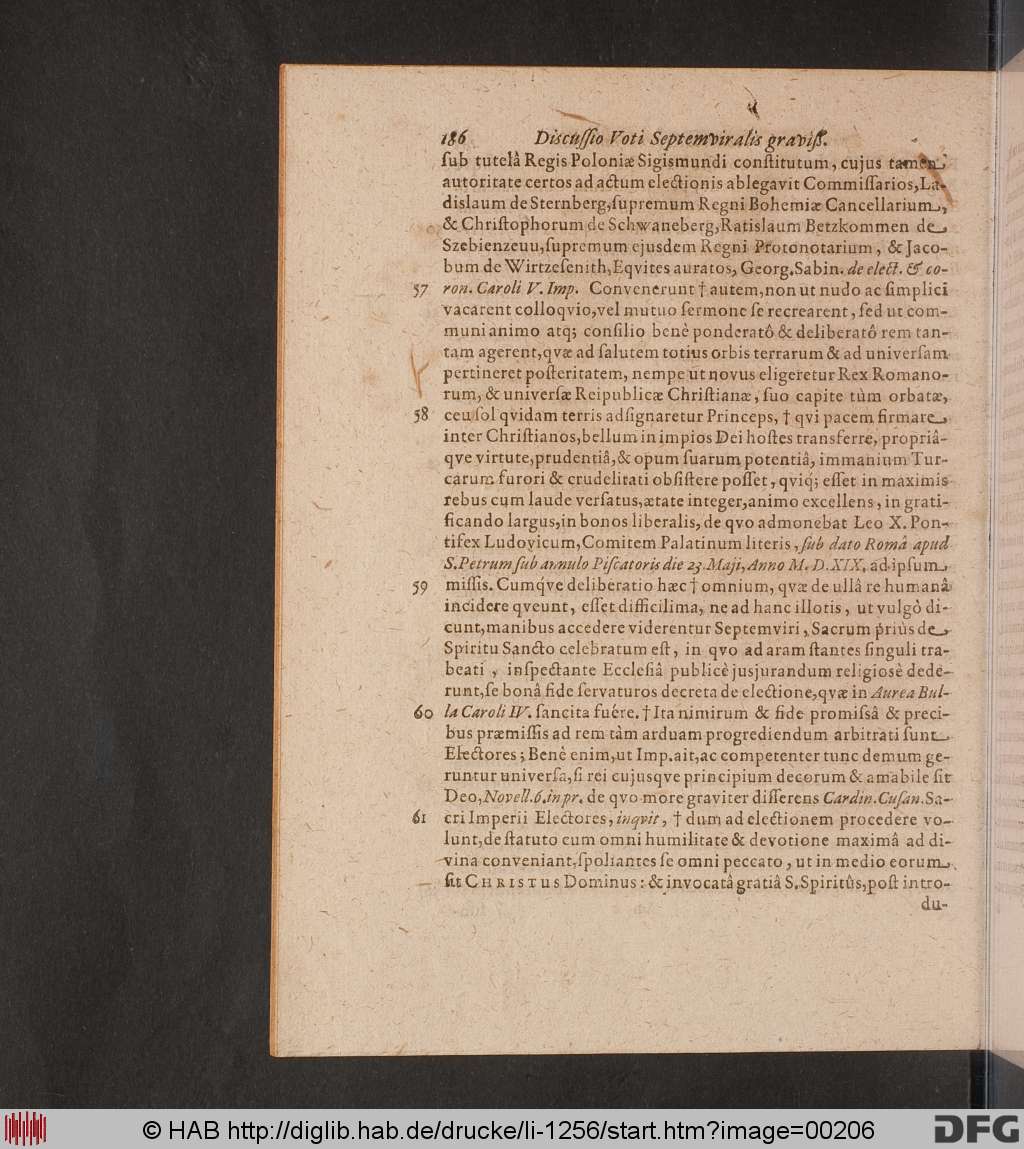 186 Discussio Voti Septemviralis graviss.
sub tutelâ Regis Poloniæ Sigismundi constitutum, cujus tamen
autoritate certos ad actum electionis ablegavit Commissarios, La-
dislaum de Sternberg, supremum Regni Bohemiæ Cancellarium,
& Christophorum de Schwaneberg, Ratislaum Betzkommen de
Szebienzeuu, supremum ejusdem Regni Protonotarium, & Jaco-
bum de Wirtzesenith, Eqvites auratos, Georg. Sabin. de elect. & co-
57 ron. Caroli V. Imp. Convenerunt † autem, non ut nudo ac simplici
vacarent colloqvio, vel mutuo sermone se recrearent, sed ut com-
muni animo atq; consilio benè ponderatô & deliberatô rem tan-
tam agerent, qvæ ad salutem totius orbis terrarum & ad universam
pertineret posteritatem, nempe ut novus eligeretur Rex Romano-
rum, & universæ Reipublicæ Christianæ, suo capite tùm orbatæ,
58 ceu sol qvidam terris adsignaretur Princeps, † qvi pacem firmare
inter Christianos, bellum in impios Dei hostes transferre, propriâ-
qve virtute, prudentiâ, & opum suarum potentiâ, immanium Tur-
carum furori & crudelitati obsistere posset, qviq; esset in maximis
rebus cum laude versatus, ætate integer, animo excellens, in grati-
ficando largus, in bonos liberalis, de qvo admonebat Leo X. Pon-
tifex Ludovicum, Comitem Palatinum literis, sub dato Româ apud
S. Petrum sub annulo Piscatoris die 23. Maji, Anno M. D. XIX, ad ipsum
59 missis. Cumqve deliberatio hæc † omnium, qvæ de ullâ re humanâ
incidere qveunt, esset difficilima, ne ad hanc illotis, ut vulgò di-
cunt, manibus accedere viderentur Septemviri, Sacrum priùs de
Spiritu Sancto celebratum est, in qvo ad aram stantes singuli tra-
beati, inspectante Ecclesiâ publicè jusjurandum religiosè dede-
runt, se bonâ fide servaturos decreta de electione, qvæ in Aurea Bul-
60 la Caroli IV. sancita fuére. † Ita nimirum & fide promissâ & preci-
bus præmissis ad rem tàm arduam progrediendum arbitrati sunt
Electores; Benè enim, ut Imp. ait, ac competenter tunc demum ge-
runtur universa, si rei cujusqve principium decorum & amabile sit
Deo, Novell. 6. in pr. de qvo more graviter disserens Cardin. Cusan. Sa-
61 cri Imperii Electores, inqvit, † dum ad electionem procedere vo-
lunt, de statuto cum omni humilitate & devotione maximâ ad di-
vina conveniant, spoliantes se omni peccato, ut in medio eorum
sit CHRISTUS Dominus: & invocatâ gratiâ S. Spiritûs, post intro-
du-
© HAB http://diglib.hab.de/drucke/li-1256/start.htm?image=00206
DFG